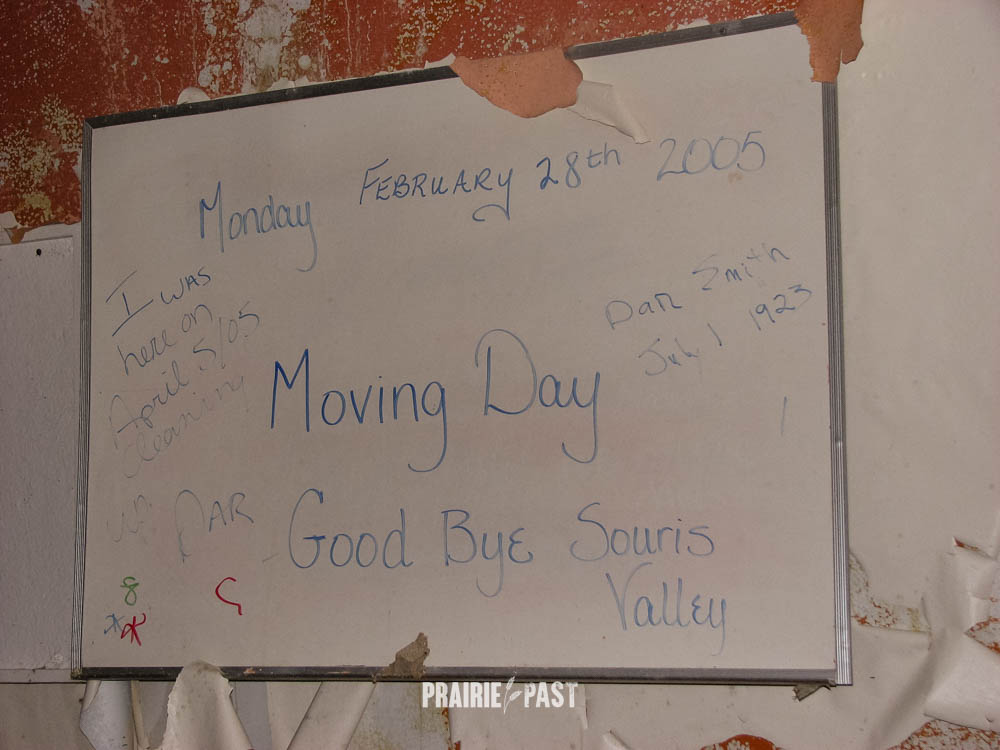 Monday FEBRUARY 28th 2005
I WAS
here on
April 5/05
cleaning
up.
DAR
Dan Smith
July 1 1923
Moving Day
Good Bye Souris
Valley
8
PRAIRIE PAST